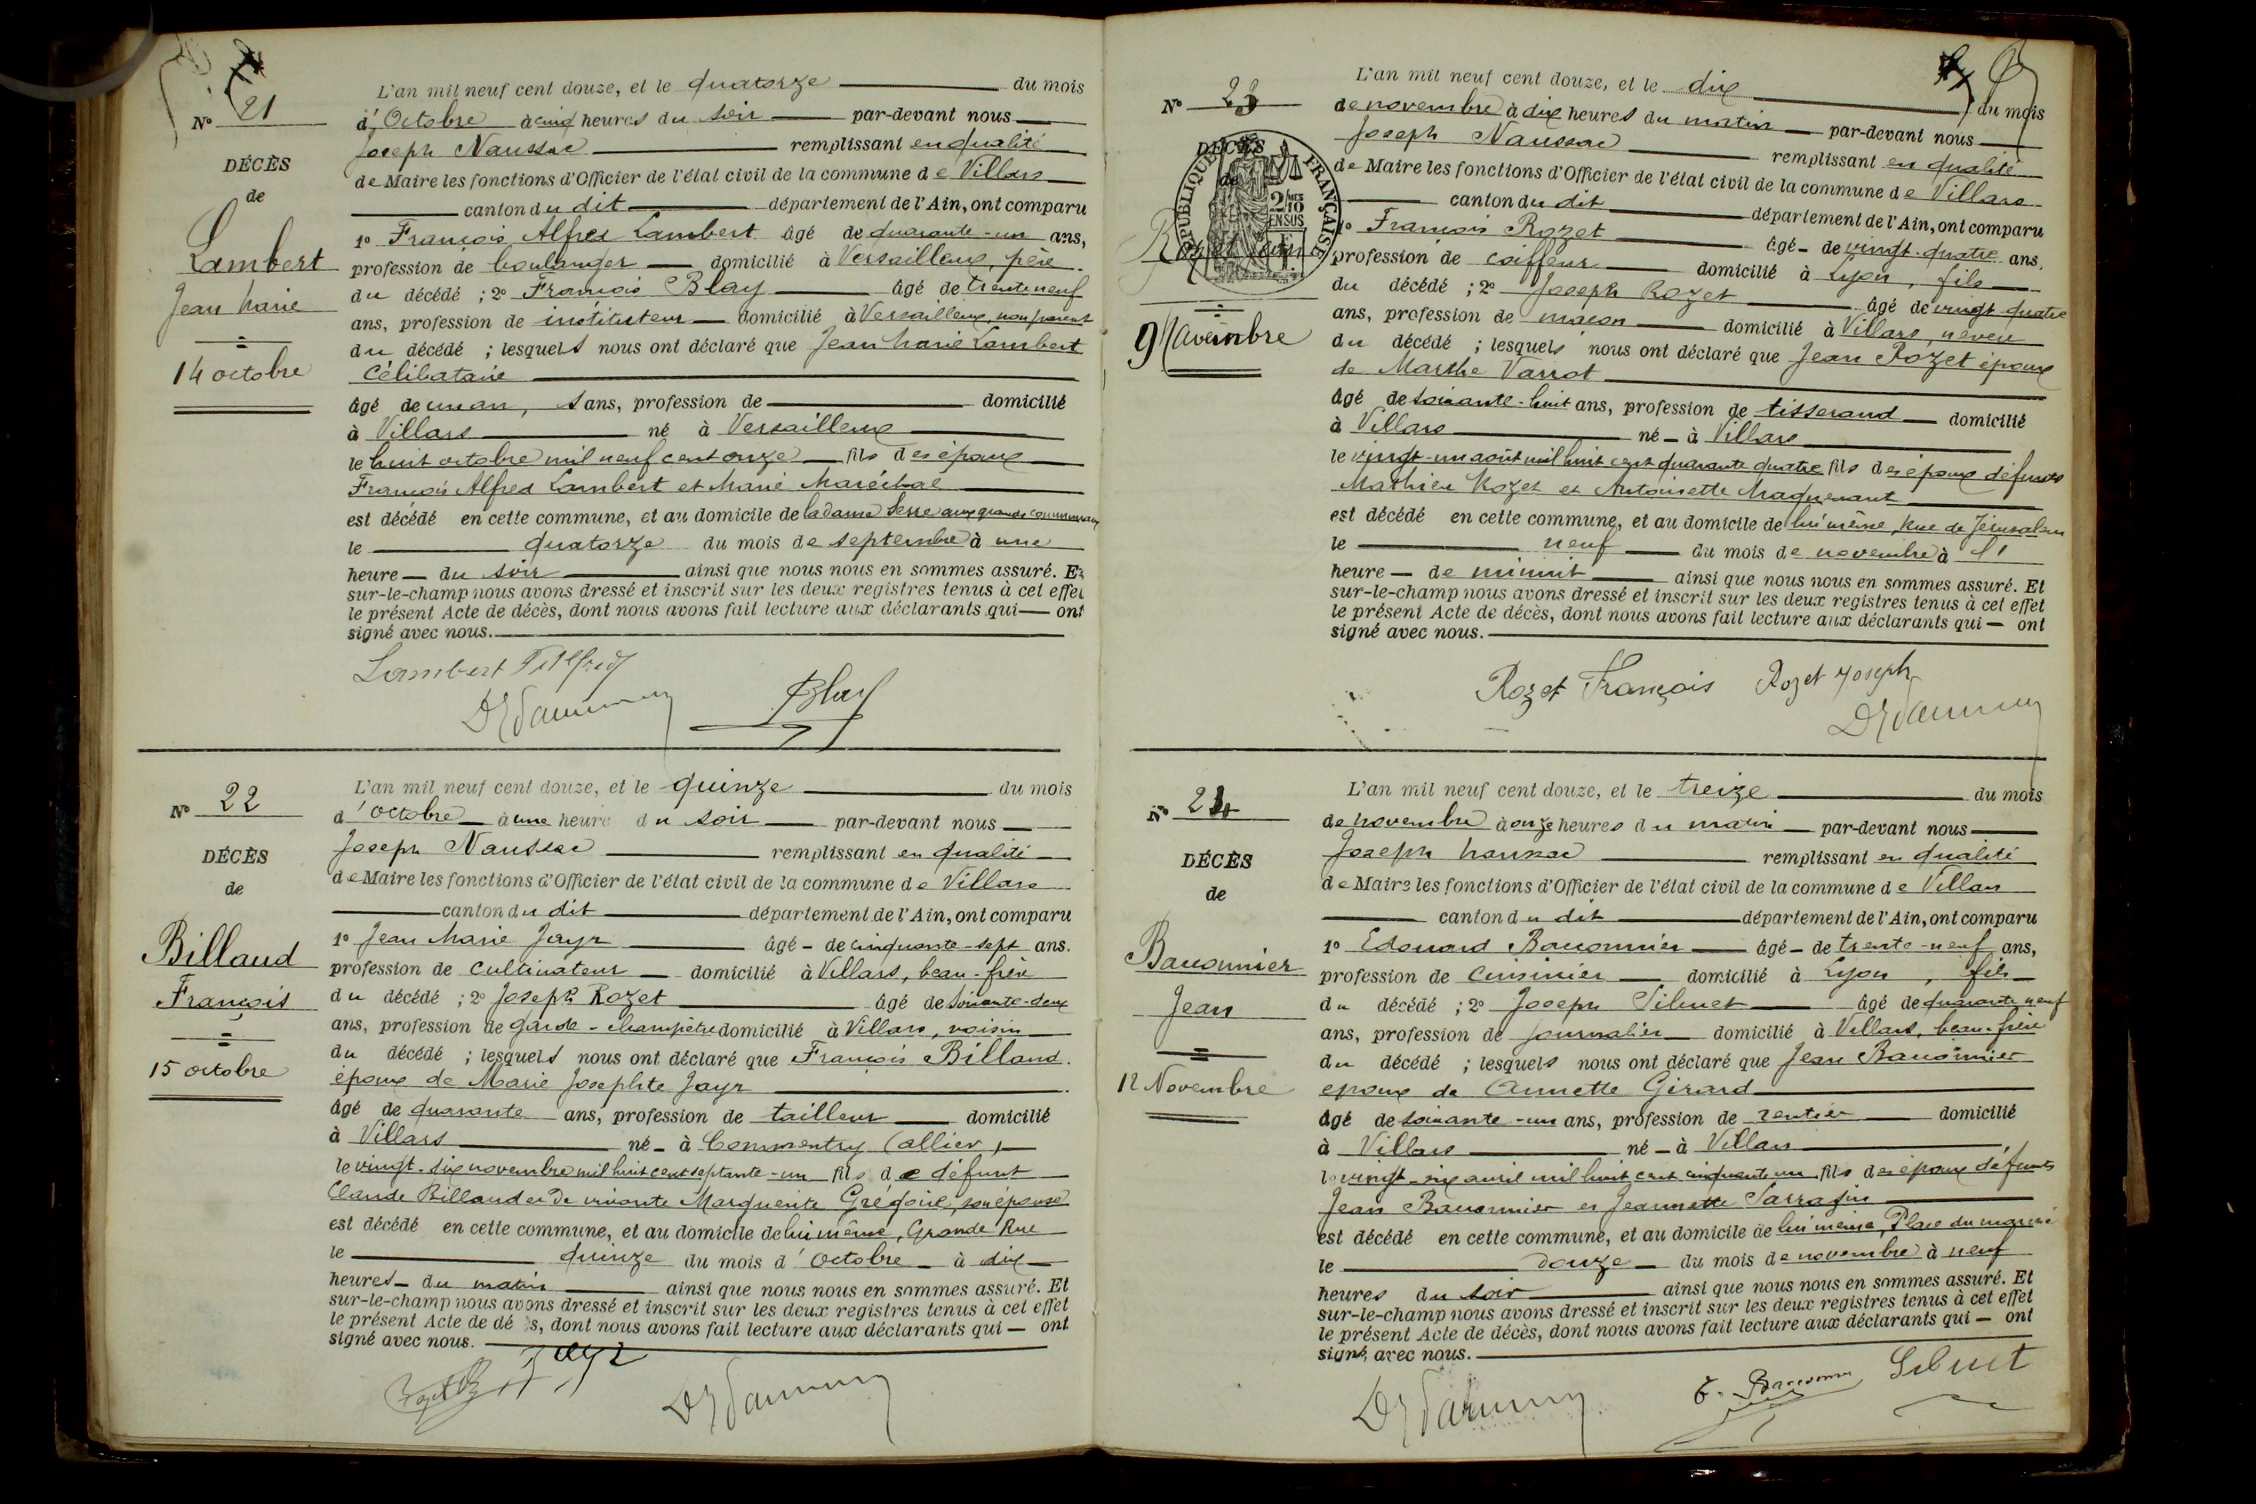 N° 21
DÉCÈS
de
Lambert
Jean Marie
14 octobre
L'an mil neuf cent douze, et le quatorze du mois
d'Octobre à cinq heures du soir par-devant nous
Joseph Naussac remplissant en qualité
de Maire les fonctions d'Officier de l'état civil de la commune de Villars
canton du dit département de l'Ain, ont comparu
1° François Alfred Lambert âgé de quarante-un ans,
profession de boulanger domicilié à Versailleux, père
du décédé ; 2° François Blay âgé de trente neuf
ans, profession de instituteur domicilié à Versailleux, non parent
du décédé ; lesquels nous ont déclaré que Jean Marie Lambert
Célibataire
âgé de un an, sans, profession de domicilié
à Villars né à Versailleux
le huit octobre mil neuf cent onze fils des époux
François Alfred Lambert et Marie Maréchal
est décédé en cette commune, et au domicile de la dame Serre aux grands communaux
le quatorze du mois de septembre à une
heure du soir ainsi que nous nous en sommes assuré. Et
sur-le-champ nous avons dressé et inscrit sur les deux registres tenus à cet effet
le présent Acte de décès, dont nous avons fait lecture aux déclarants qui ont
signé avec nous.
Lambert F Alfred
Blay
N° 22
DÉCÈS
de
Billaud
François
15 octobre
L'an mil neuf cent douze, et le quinze du mois
d'octobre à une heure du soir par-devant nous
Joseph Naussac remplissant en qualité
de Maire les fonctions d'Officier de l'état civil de la commune de Villars
canton du dit département de l'Ain, ont comparu
1° Jean Marie Jayr âgé de cinquante-sept ans.
profession de cultivateur domicilié à Villars, beau-frère
du décédé ; 2° Joseph Rozet âgé de soixante-deux
ans, profession de garde-champêtre domicilié à Villars, voisin
du décédé ; lesquels nous ont déclaré que François Billaud.
époux de Marie Josephte Jayr
âgé de quarante ans, profession de tailleur domicilié
à Villars né à Commentry (Allier)
le vingt-six novembre mil huit cent septante-un fils de défunt
Claude Billaud et de vivante Marguerite Grégoire, son épouse
est décédé en cette commune, et au domicile de lui même, Grande Rue
le quinze du mois d'octobre à dix
heures du matin ainsi que nous nous en sommes assuré. Et
sur-le-champ nous avons dressé et inscrit sur les deux registres tenus à cet effet
le présent Acte de dé s, dont nous avons fait lecture aux déclarants qui ont
signé avec nous.
Jayr
N° 23
DÉCÈS
de
RÉPUBLIQUE FRANÇAISE
2/10 EN SUS
Rozet Jean
9 Novembre
L'an mil neuf cent douze, et le dix du mois
de novembre à dix heures du matin par-devant nous
Joseph Naussac remplissant en qualité
de Maire les fonctions d'Officier de l'état civil de la commune de Villars
canton du dit département de l'Ain, ont comparu
1° François Rozet âgé de vingt-quatre ans,
profession de coiffeur domicilié à Lyon, fils
du décédé ; 2° Joseph Rozet âgé de vingt-quatre
ans, profession de maçon domicilié à Villars, neveu
du décédé ; lesquels nous ont déclaré que Jean Rozet époux
de Marthe Varrot
âgé de soixante-huit ans, profession de tisserand domicilié
à Villars né à Villars
le vingt-un août mil huit cent quarante quatre fils des époux défunts
Mathieu Rozet et Antoinette
est décédé en cette commune, et au domicile de lui même, Rue de Jérusalem
le neuf du mois de novembre à
heure de minuit ainsi que nous nous en sommes assuré. Et
sur-le-champ nous avons dressé et inscrit sur les deux registres tenus à cet effet
le présent Acte de décès, dont nous avons fait lecture aux déclarants qui ont
signé avec nous.
Rozet François Rozet Joseph
N° 24
DÉCÈS
de
Bauonnier
Jean
12 Novembre
L'an mil neuf cent douze, et le treize du mois
de novembre à onze heures du matin par-devant nous
Joseph Naussac remplissant en qualité
de Maire les fonctions d'Officier de l'état civil de la commune de Villars
canton du dit département de l'Ain, ont comparu
1° Edouard Bauonnier âgé de trente-neuf ans,
profession de cuisinier domicilié à Lyon, fils
du décédé ; 2° Joseph Sibuet âgé de quarante neuf
ans, profession de journalier domicilié à Villars, beau-frère
du décédé ; lesquels nous ont déclaré que Jean Bauonnier
époux de Annette Girard
âgé de soixante-un ans, profession de rentier domicilié
à Villars né à Villars
le vingt-six avril mil huit cent cinquante un fils des époux défunts
Jean Bauonnier et Jeannette Sarrazin
est décédé en cette commune, et au domicile de lui même, Place du marché
le douze du mois de novembre à neuf
heures du soir ainsi que nous nous en sommes assuré. Et
sur-le-champ nous avons dressé et inscrit sur les deux registres tenus à cet effet
le présent Acte de décès, dont nous avons fait lecture aux déclarants qui ont
signé, avec nous.
Sibuet